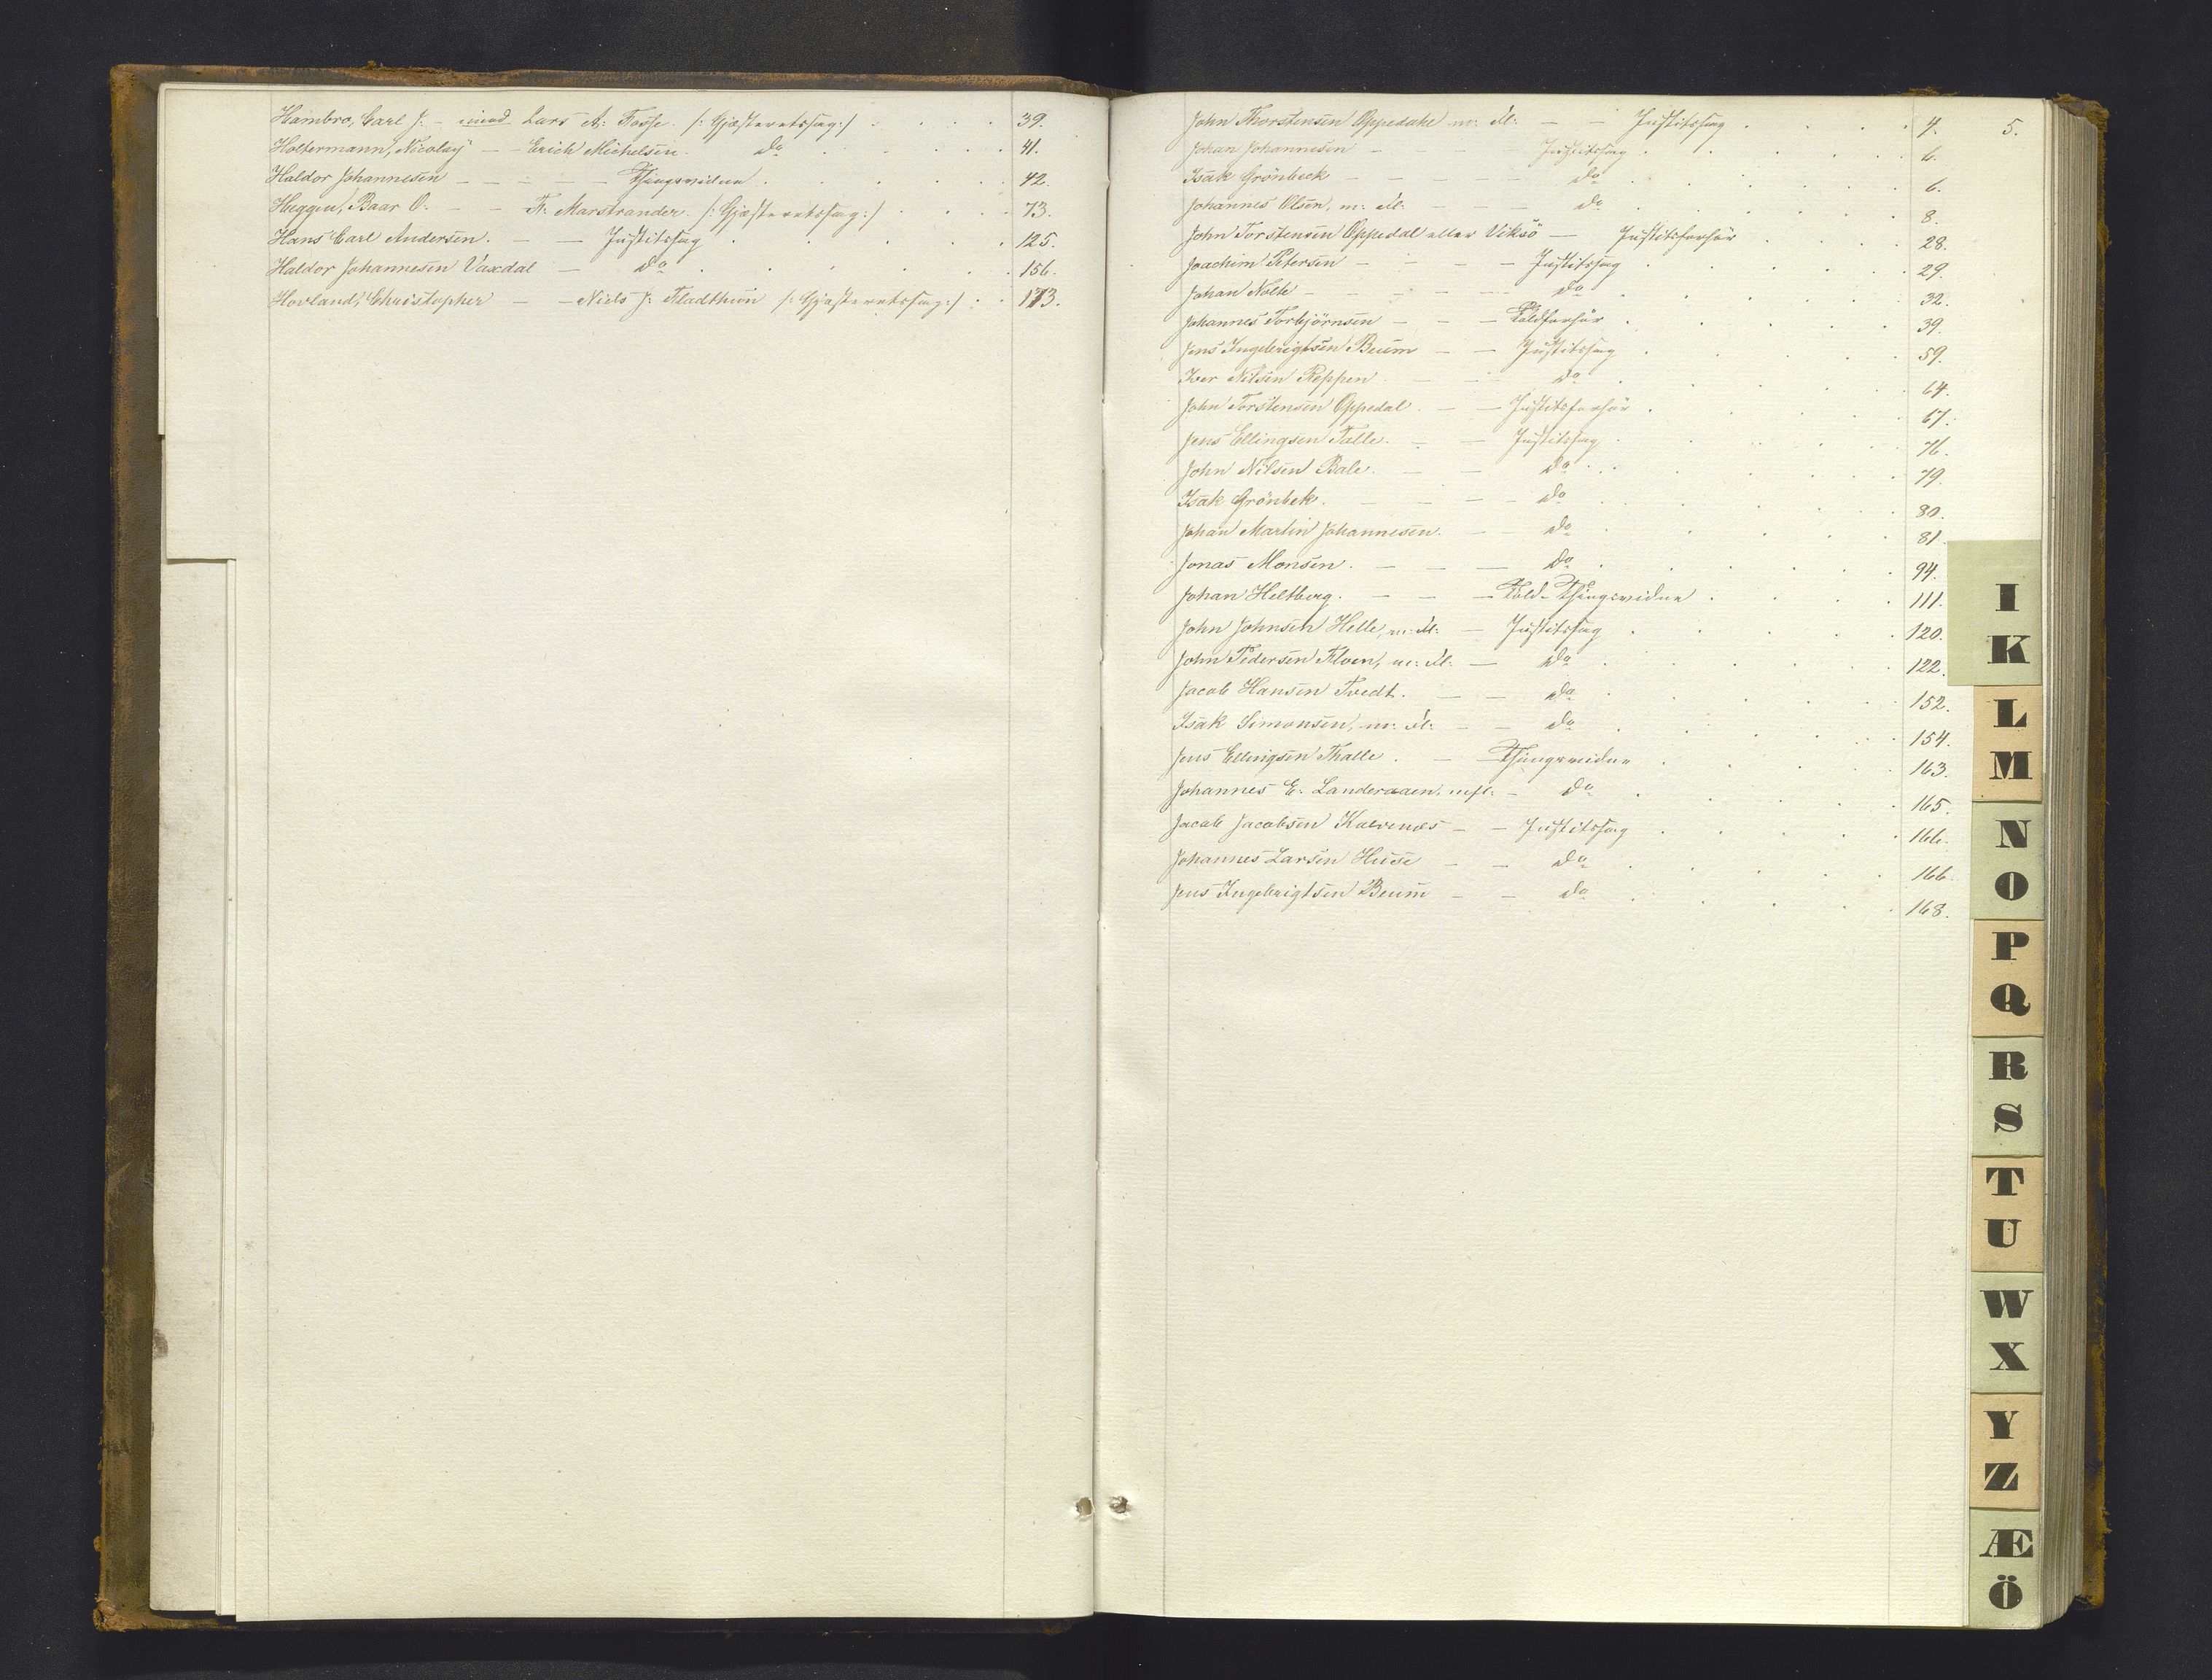 Hambro, Carl J. - mod Lars A. Fosse. /: Gjæsteretssag :/ . . . . 39.
Holtermann, Nicolay - - Erich Michelsen. do . . . . 41.
Haldor Johannesen - - - - Thingsvidne . . . . 42.
Heggen, Baar O. - - F. Marstrander. /: Gjæsteretssag :/ . . . . 73.
Hans Carl Andersen. - - Justitssag . . . . 125.
Haldor Johannesen Vaxdal - do . . . . 156.
Hovland, Christopher - - Niels J. Fladthun /: Gjæsteretssag :/ . . 173.
5.
John Thorstensen Oppedahl m: Fl: - - Justitssag . . . . 4.
Johan Johannesen - - - - Justitssag . . . . 6.
Isak Grönbeck - - - - - do . . . . 6.
Johannes Olsen, m: Fl: - - - do . . . . 8.
John Torstensen Oppedal eller Viksö - Justitsforhör . . . . 28.
Joachim Petersen - - - - Justitssag . . . . 29.
Johan Nolte - - - - - do . . . . 32.
Johannes Torbjörnsen - - - Toldforhör . . . . 39.
Jens Ingebrigtsen Beum - - Justitssag . . . . 59.
Iver Nilsen Reppen - - do . . . . 64.
John Torstensen Oppedal. - - Justitsforhör . . . . 67.
Jens Ellingsen Talle. - - Justitssag . . . . 76.
John Nilsen Bale. - - do . . . . 79.
Isak Grönbek. - - - - do . . . . 80.
Johan Martin Johannesen. - - do . . . . 81.
Jonas Monsen. - - - - do . . . . 94.
Johan Heltberg. - - - Told-Thingsvidne . . . . 111.
John Johnsen Helle, m: Fl: - Justitssag . . . . 120.
John Pedersen Floen, m: Fl: - do . . . . 122.
Jacob Hansen Tvedt. - - do . . . . 152.
Isak Simonsen, m: Fl: - - do . . . . 154.
Jens Ellingsen Thalle. - Thingsvidne . . . . 163.
Johannes E. Landeraaen, m fl: - do . . . . 165.
Jacob Jacobsen Kalvenes - - Justitssag . . . . 166.
Johannes Larsen Huse - - do . . . . 166.
Jens Ingebrigtsen Beum - - do . . . . 168.
I
K
L
M
N
O
P
Q
R
S
T
U
W
X
Y
Z
Æ
Ö